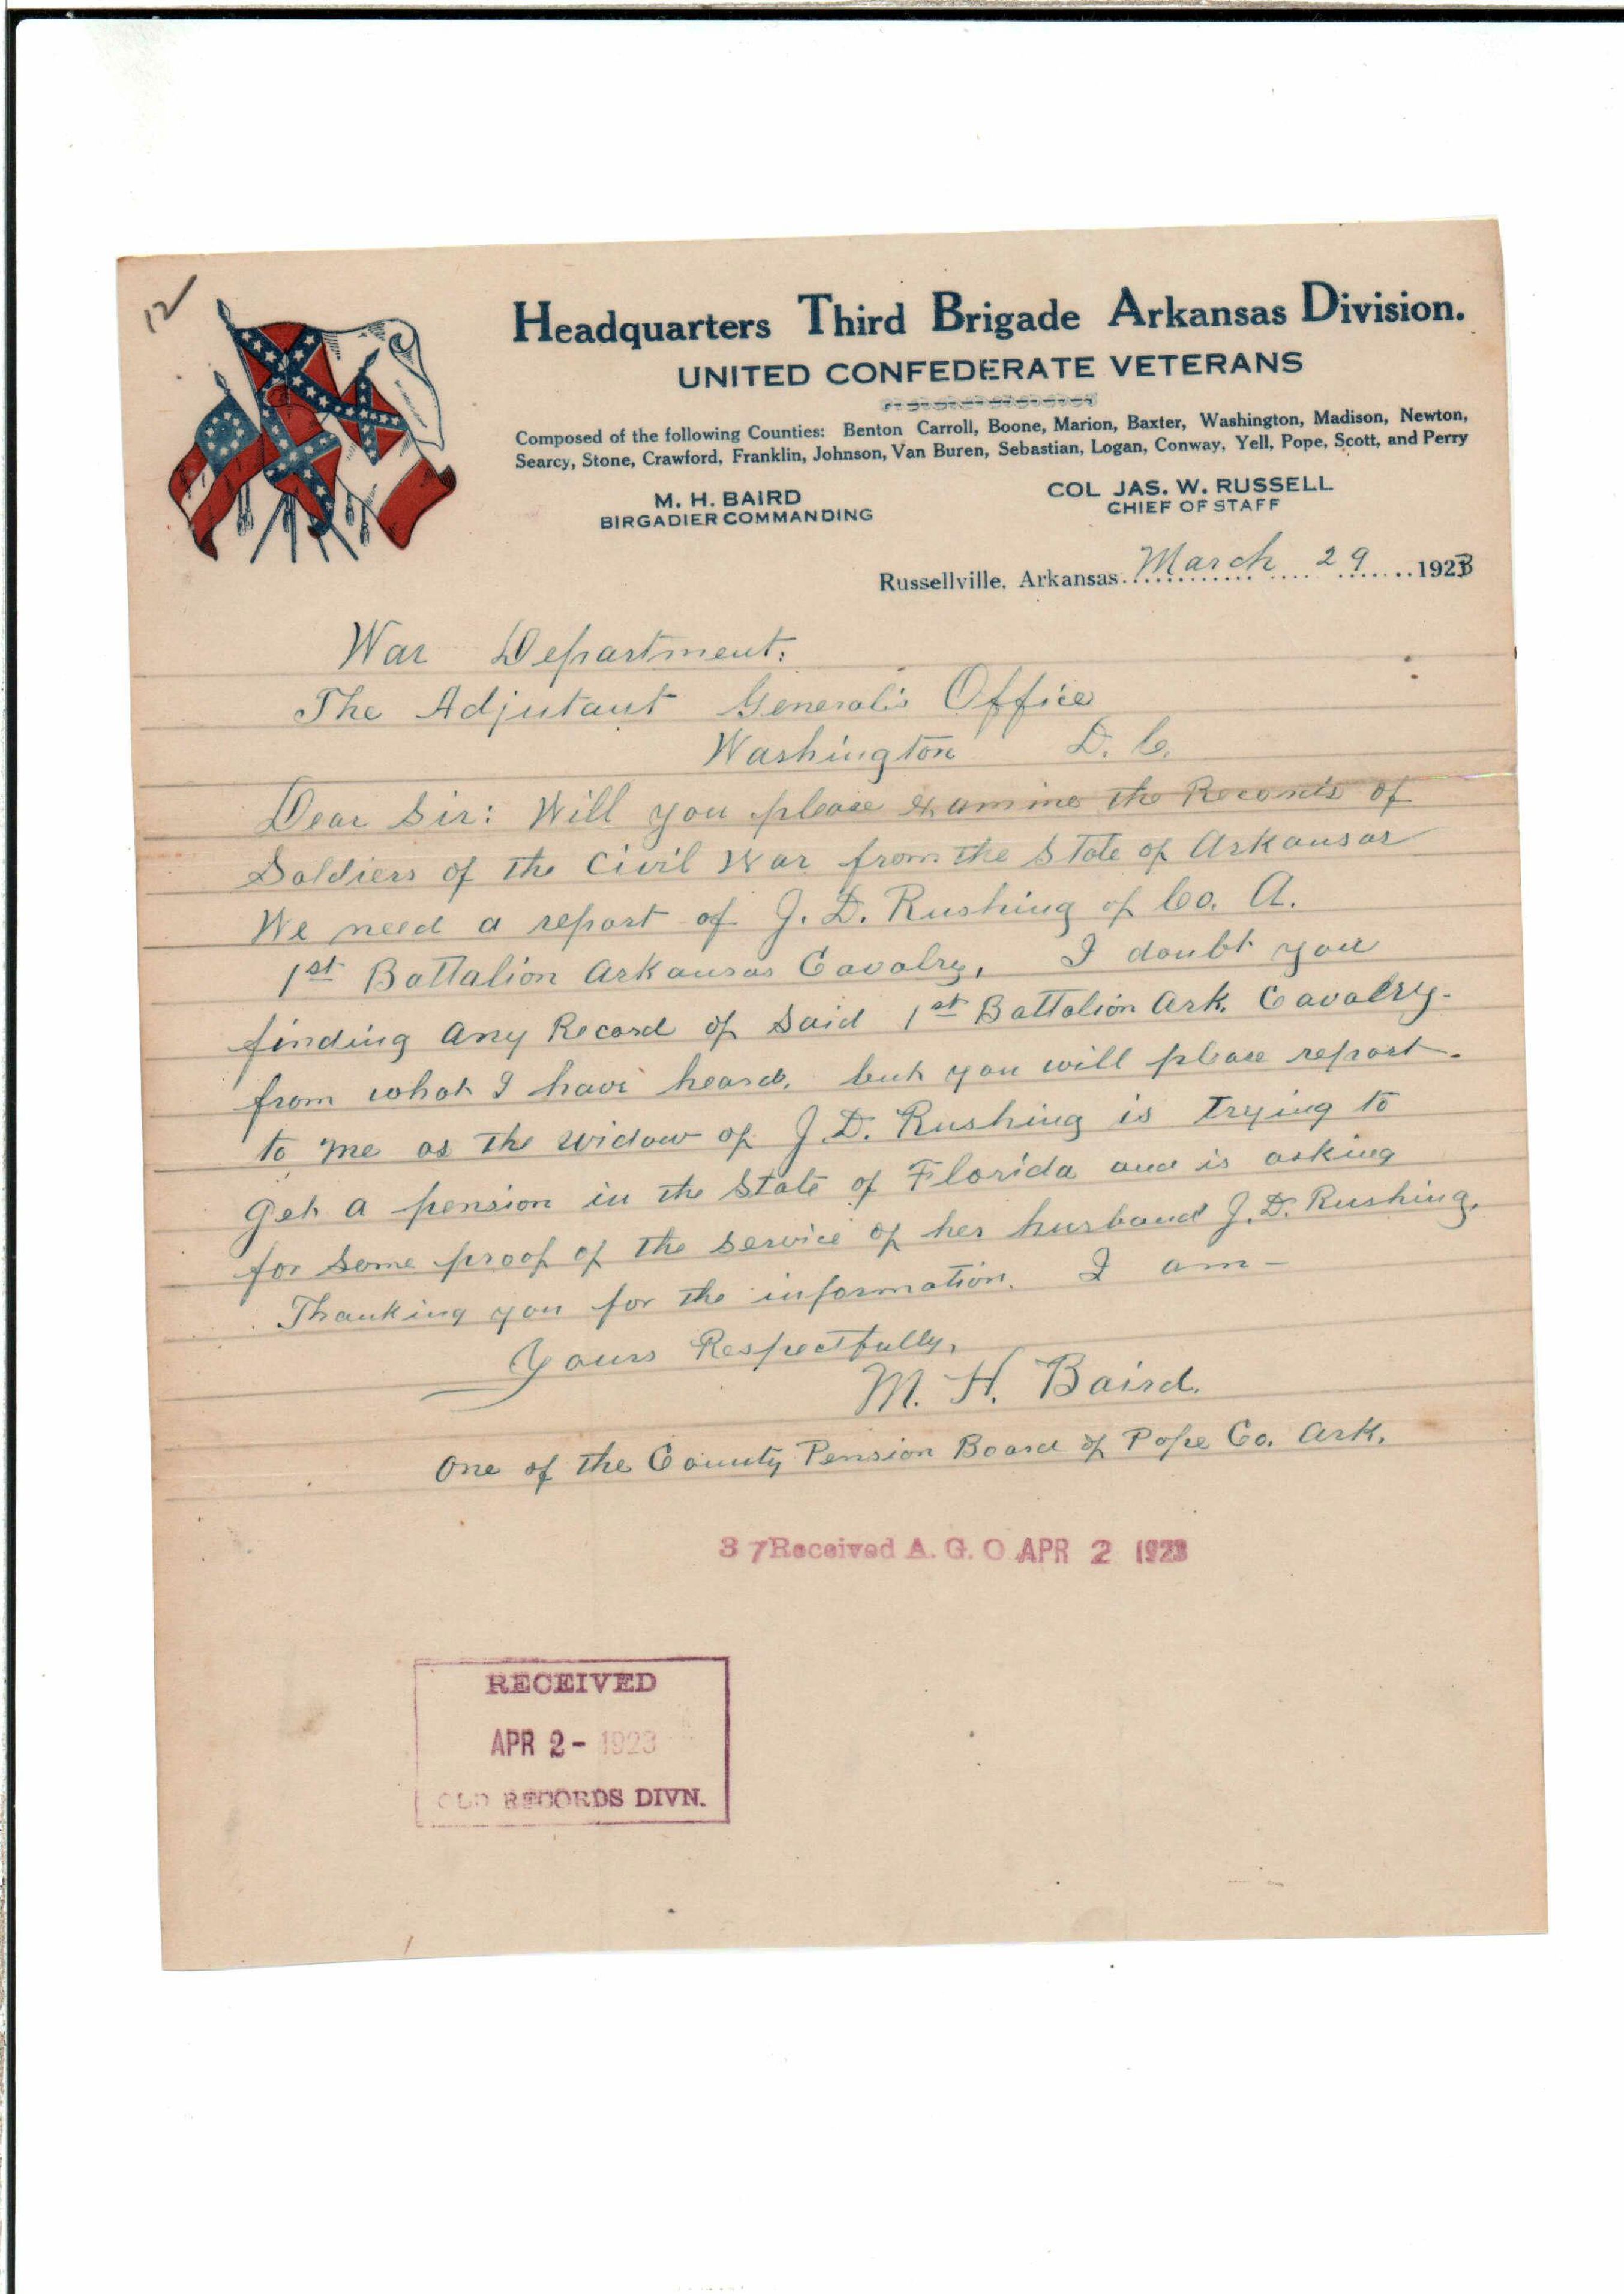 12
Headquarters Third Brigade Arkansas Division.
UNITED CONFEDERATE VETERANS
Composed of the following Counties: Benton Carroll, Boone, Marion, Baxter, Washington, Madison, Newton,
Searcy, Stone, Crawford, Franklin, Johnson, Van Buren, Sebastian, Logan, Conway, Yell, Pope, Scott, and Perry
M. H. BAIRD
BIRGADIER COMMANDING
COL JAS. W. RUSSELL
CHIEF OF STAFF
Russellville, Arkansas. March 29 1923
War Department:
The Adjutant General's Office
Washington D. C.
Dear Sir: Will you please examine the Records of
Soldiers of the Civil War from the State of Arkansas
We need a report of J. D. Rushing of Co. A.
1st Battalion Arkansas Cavalry, I doubt you
finding any Record of said 1st Battalion Ark. Cavalry.
from what I have heard, but you will please report.
to me as the widow of J. D. Rushing is trying to
get a pension in the State of Florida and is asking
for some proof of the service of her husband J. D. Rushing.
Thanking you for the information. I am -
Yours Respectfully,
M. H. Baird.
One of the County Pension Board of Pope Co. Ark.
37 Received A. G. O. APR 2 1923
RECEIVED
APR 2 - 1923
OLD RECORDS DIVN.